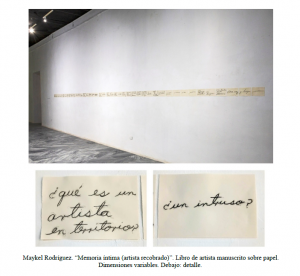 ¿qué es un
artista
en territorio?
¿un intruso?
Maykel Rodríguez. "Memoria íntima (artista recobrado)". Libro de artista manuscrito sobre papel.
Dimensiones variables. Debajo: detalle.